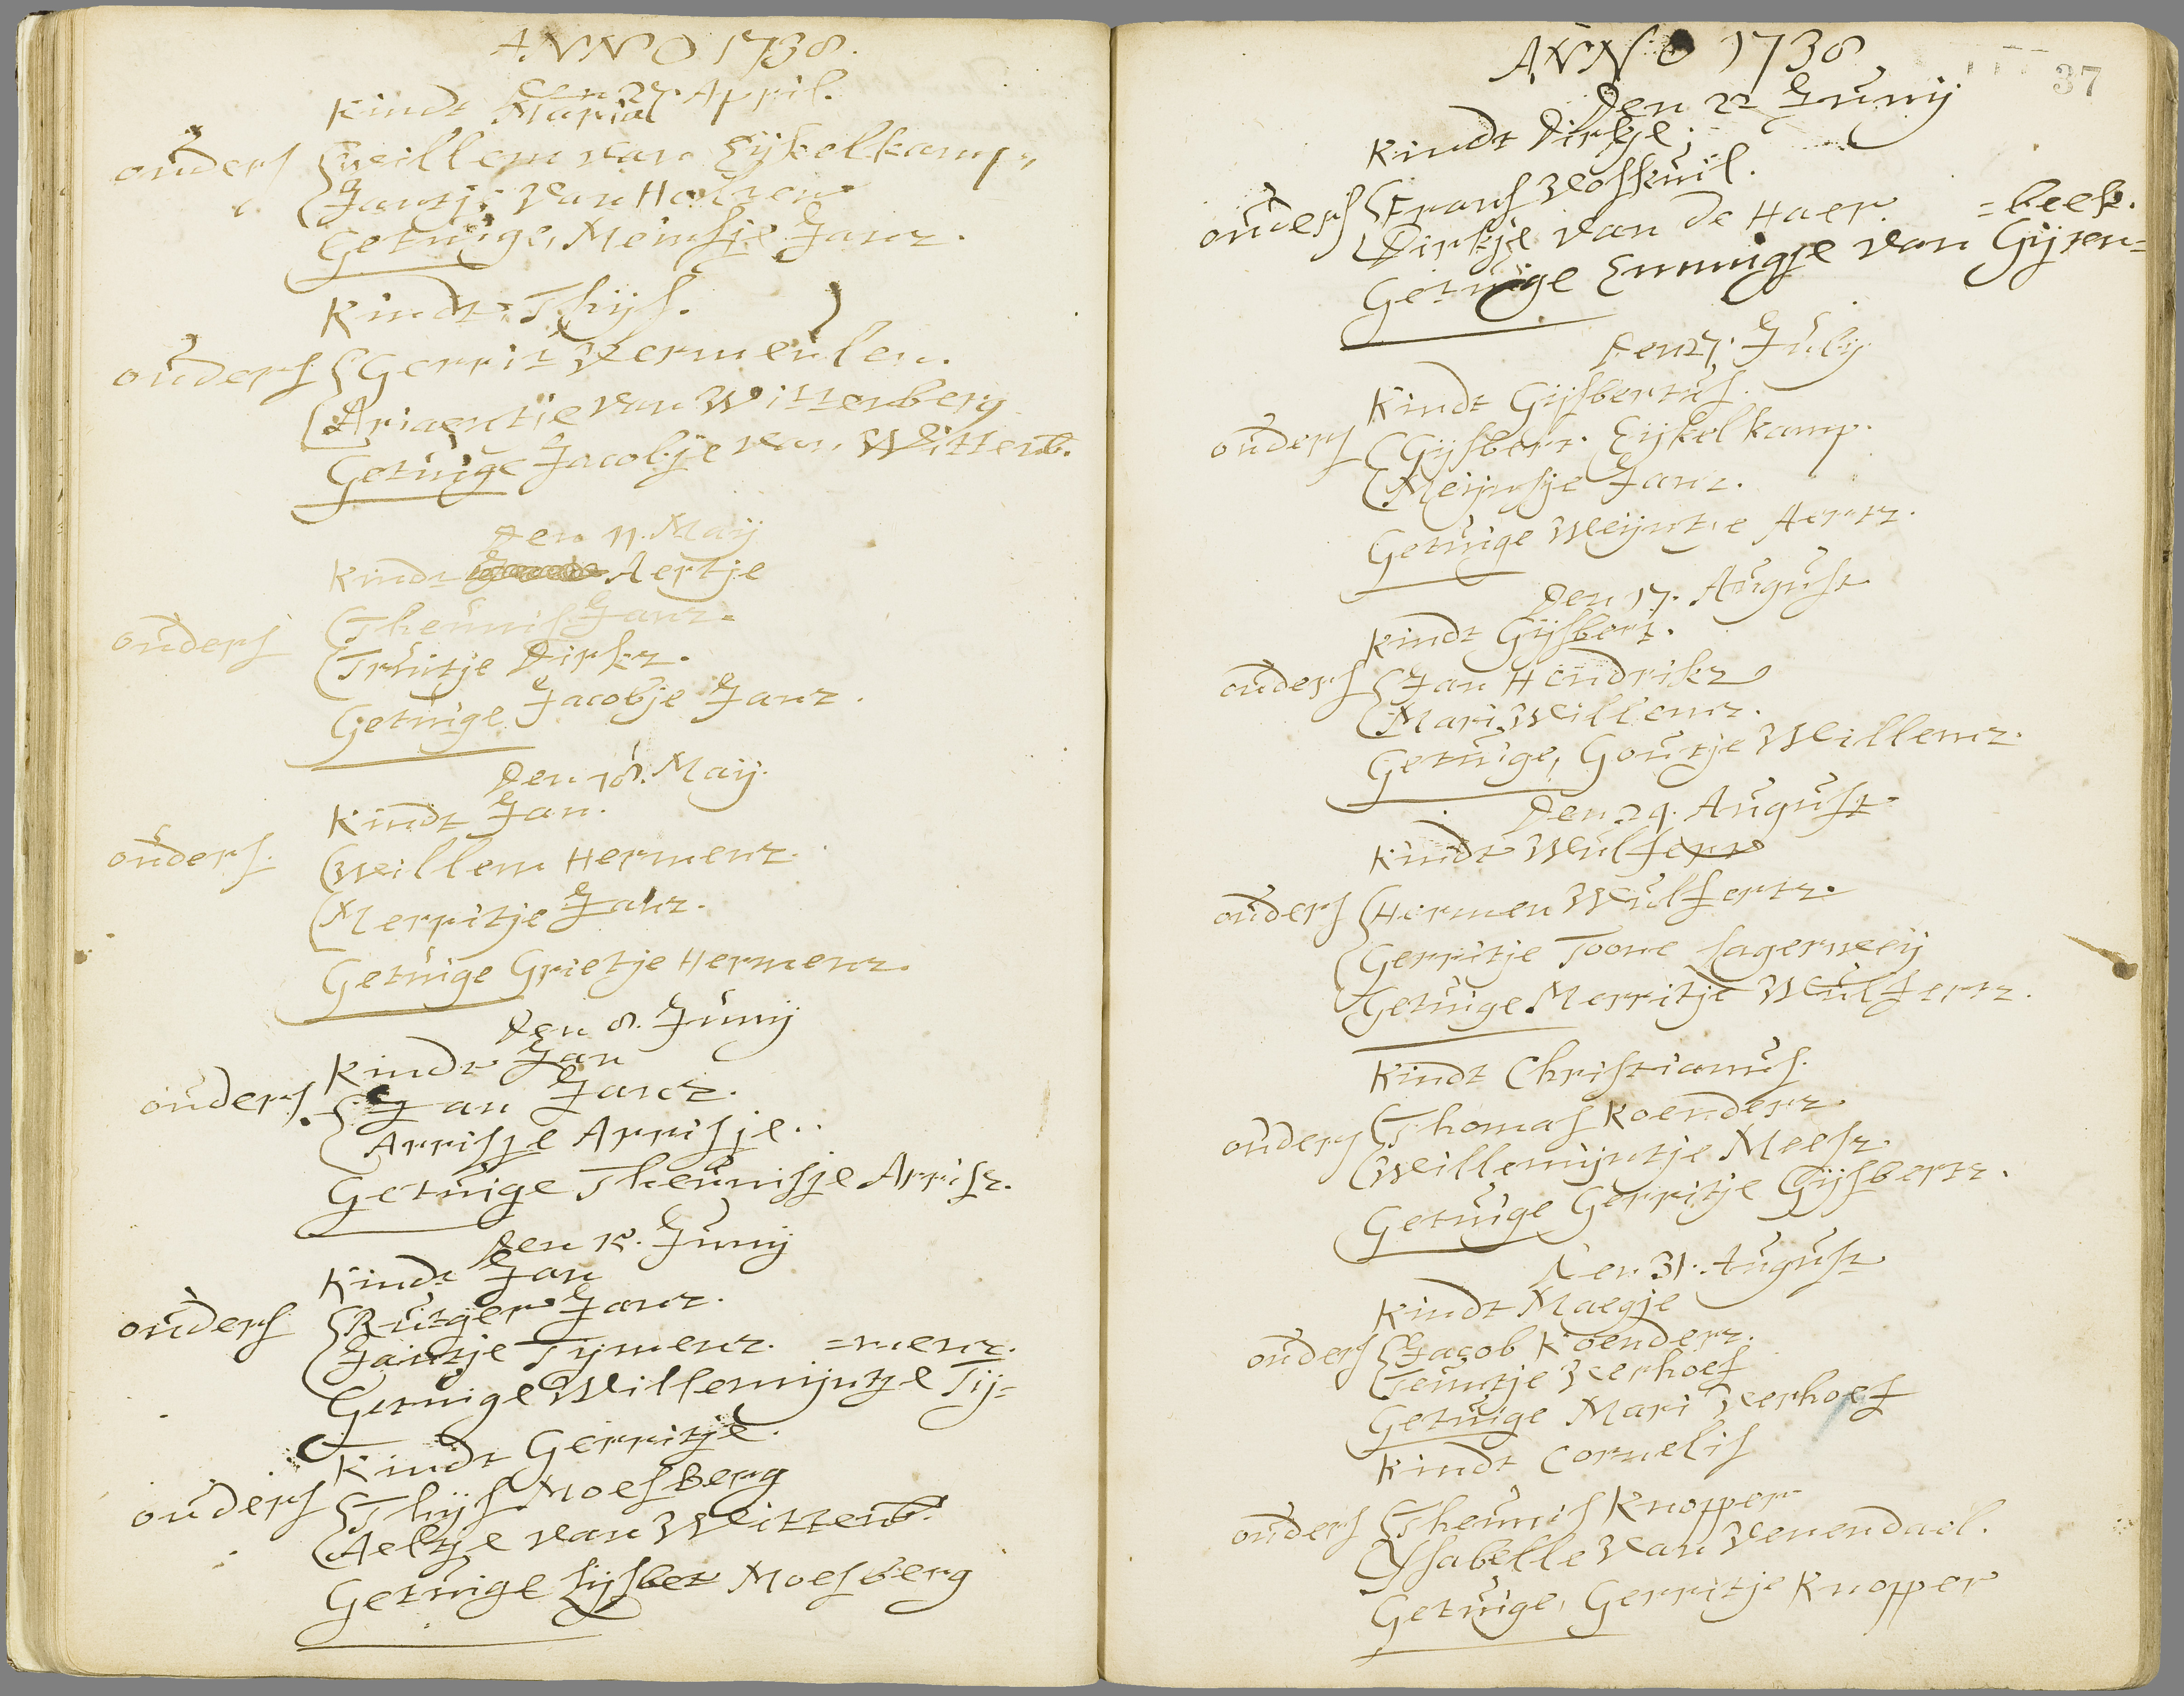 ANNO 1738.
den 27. April.
Kindt Maria
ouders Willem van Eijkelkamp,
Jantje van Halven
Getuige, Meinsje Janz.
Kindt Thijs.
ouders Gerrit Vermeulen.
Ariaentje van Wittenberg
Getuige Jacobje van Wittenb.
Den 11. Maij
Kindt Aertje
ouders Theunis Janz.
Truitje Dirkz.
Getuige Jacobje Janz.
Den 18. Maij.
Kindt Jan.
ouders. Willem Hermenz.
Merritje Janz.
Getuige Grietje Hermenz.
Den 8. Junij
Kindt Jan
ouders. Jan Janz.
Arrisje Arrisje..
Getuige Theunisje Arrisz.
Den 15. Junij
Kindt Jan
ouders Rutger Janz.
Jantje Tijmenz. =menz.
Getuige Willemijntje Tij=
Kindt Gerritje.
ouders Thijs Moesberg
Aeltje van Wittenb.
Getuige Lijsbet Moesberg
37
ANNO 1738
Den 22 Junij
Kindt Dirkje;
ouders Frans Voskuil.
Dirkje van de Haer. =beek.
Getuige Emmigje van Gijsen=
Den 27. Julij
Kindt Gijsbertus.
ouders Gijsbert Eijkelkamp.
Meijnsje Janz.
Getuige Weijntje Aertz.
Den 17. August
Kindt Gijsbert.
ouders Jan Hendrikz
Mari Willemz.
Getuige, Goutje Willemz.
Den 24. August
Kindt Wulfert
ouders Hermen Wulfertz.
Gerritje Toone Lagerweij
Getuige Merritje Wulfertz.
Kindt Christianus.
ouders Thomas Koenderz.
Willemijntje Meesz.
Getuige Gerritje Gijsbertz.
Den 31. August
Kindt Maegje
ouders Jacob Koenderz.
Teuntje Verhoef
Getuige Mari Verhoef
Kindt Cornelis
ouders Theunis Knopper
Ysabelle van Venendael.
Getuige, Gerritje Knopper